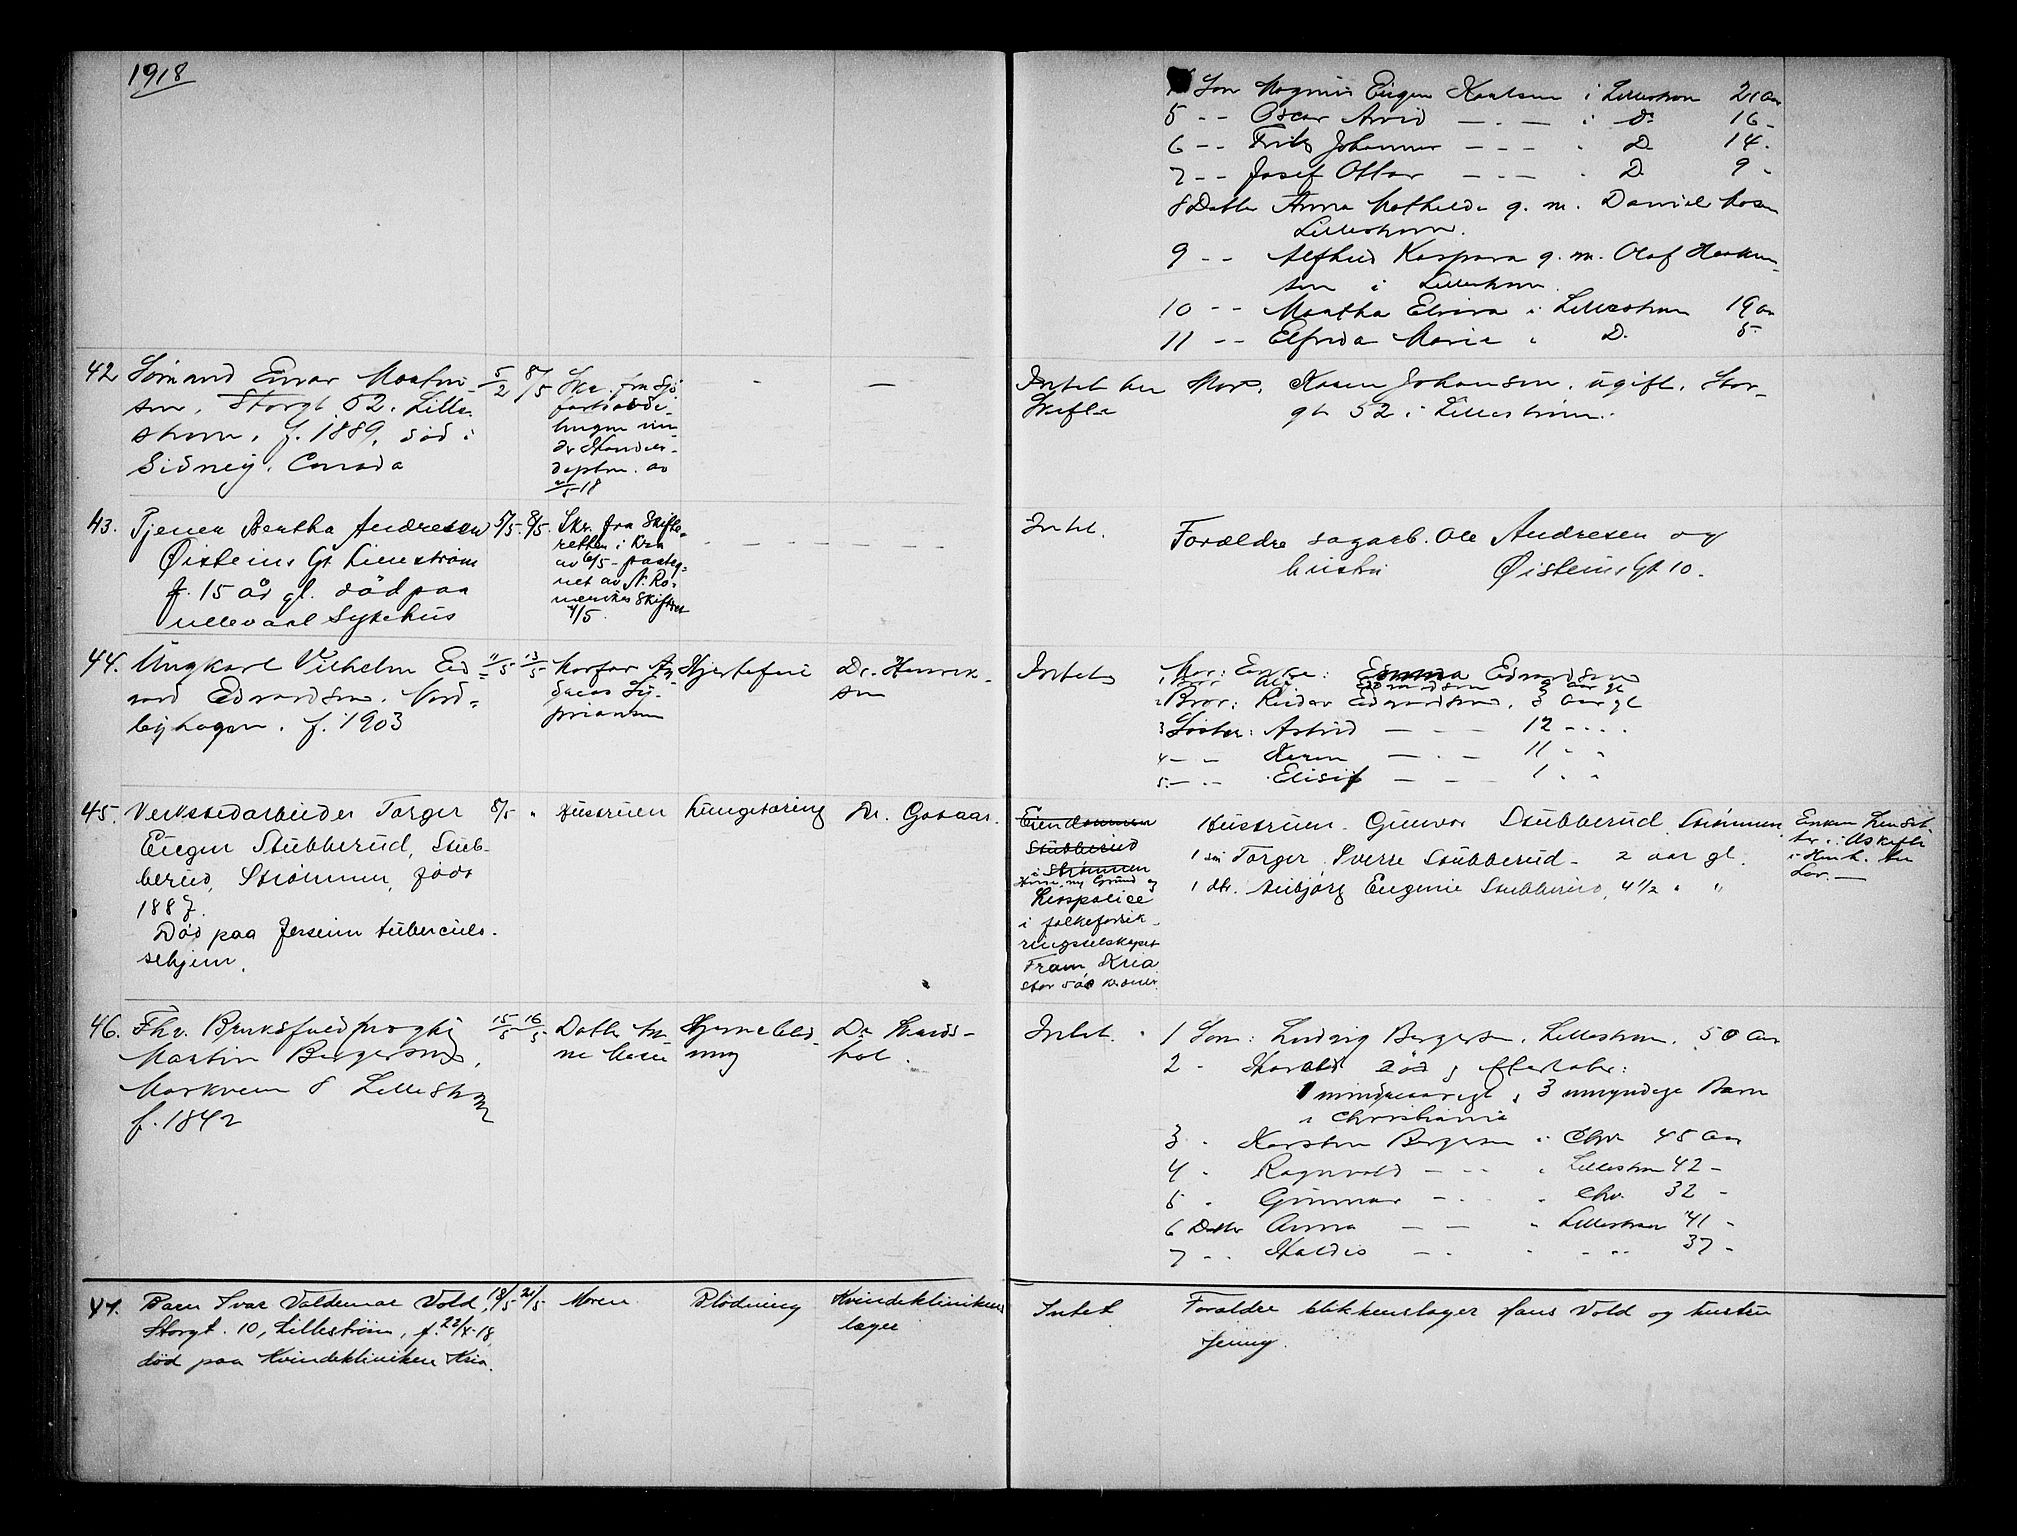 1918
Søn Magnus Eugen Karlsen i Lillestrøm 21 aar
5 - - Oscar Arvid — . — i Do 16 -
6 - - Frits Johannes — - — " D. 14 -
7 - - Josef Ottar — - — " D. 9 -
8 Datter Anna Mathilde g. m. Daniel
Lillestrøm.
9 - - Kaspara g. m. Olaf Haakon-
sen i Lillestrøm.
10 - - Martha Elvira i Lillestrøm 19 aar
11 - - Elfrida Marie i D. 5
42 Sømand Einar Martin-
sen, Storgt. 52. Lille-
strøm, f. 1889, død i
Sidney, Canada
5/2 8/5
Skr. fra Sjø-
fartsavde-
lingen un-
der Handels-
deptm. av
- —
Intet her
Skifte
Mor, Karen Johansen, ugift, Stor-
gt. 52 i Lillestrøm.
43. Tjener Bertha Andresen
Øisteins Gt Lillestrøm
f. 15 år gl. død paa
Ullevaal Sykehus
5/5. 8/5.
Skr. fra Skifte-
retten i Kria
av 6/5 - paateg-
net av N. Ro-
merikes Skifteret
7/5.
Intet.
Forældre sagarb. Ole Andresen og
hustru Øisteins Gt 10.
44. Ungkarl Vilhelm Ed-
vard Edvardsen, Nord-
byhagen. f. 1903
11/5 13/5
Morfar An-
dreas Sy-
priansen
Hjertefeil
Dr. Henrik-
sen
Intet
1 Mor: Enke: Emma Edvardsen
2 Bror: Reidar Edvardsen, 8 aar gl
3 Søster: Astrid — - — 12 - . .
4 - - Karen — - — 11 " "
5 - - Elisif — - — 1 " "
45. Verkstedarbeider Torger
Eugen Stubberud, Stub-
berud, Strømmen, født
1887.
Død paa Jessum tubercu­lo-
sehjem.
8/5 "
Hustruen
Lungetæring
Dr. Gosaas.
Eiendommen
Stubberud
i Strømmen
Huse, ny Grund og
Livspolice
i folkeforsik-
ringsselskapet
Fram, Kria
stor 500 kroner.
Hustruen. Gunvor Stubberud Strømmen
1 søn Torger Sverre Stubberud - 2 aar gl.
1 dtr. Aubjørg Eugenie Stubberud, 4 1/2 " "
Enken hensit-
ter i Uskifte
i Henh. til
Lov. —
46. Fhv. Bruksfuldmægtig
Martin Bergersen,
Markveien 8 Lillestrøm
f. 1842
15/5 16/5
Datter An-
ne Marie
Hjerneblød-
ning
Dr.
Intet.
1 Søn: Ludvig Bergersen, Lillestrøm. 50 aar
2 - Harald død, efterlater:
1 mindreaarigt, 3 umyndige Barn
i Christiania
3 - Karsten Bergersen i Chra 45 aar
4 - Ragnvald — - - " Lillestrøm 42 -
5 - Gunnar — - - " Chra. 32 -
6 Datter Anna — — " Lillestrøm 41 -
7 - - Haldis — - . " - - .. 37 -
47. Barn Ivar Valdemar Vold,
Storgt. 10, Lillestrøm, f. 22/4-18,
død paa Kvindekliniken Kria.
18/5 21/5
Moren
Blödning
Kvindeklinikens
læge
Intet.
Foraldre blikkenslager Hans Vold og hustru
Jenny.